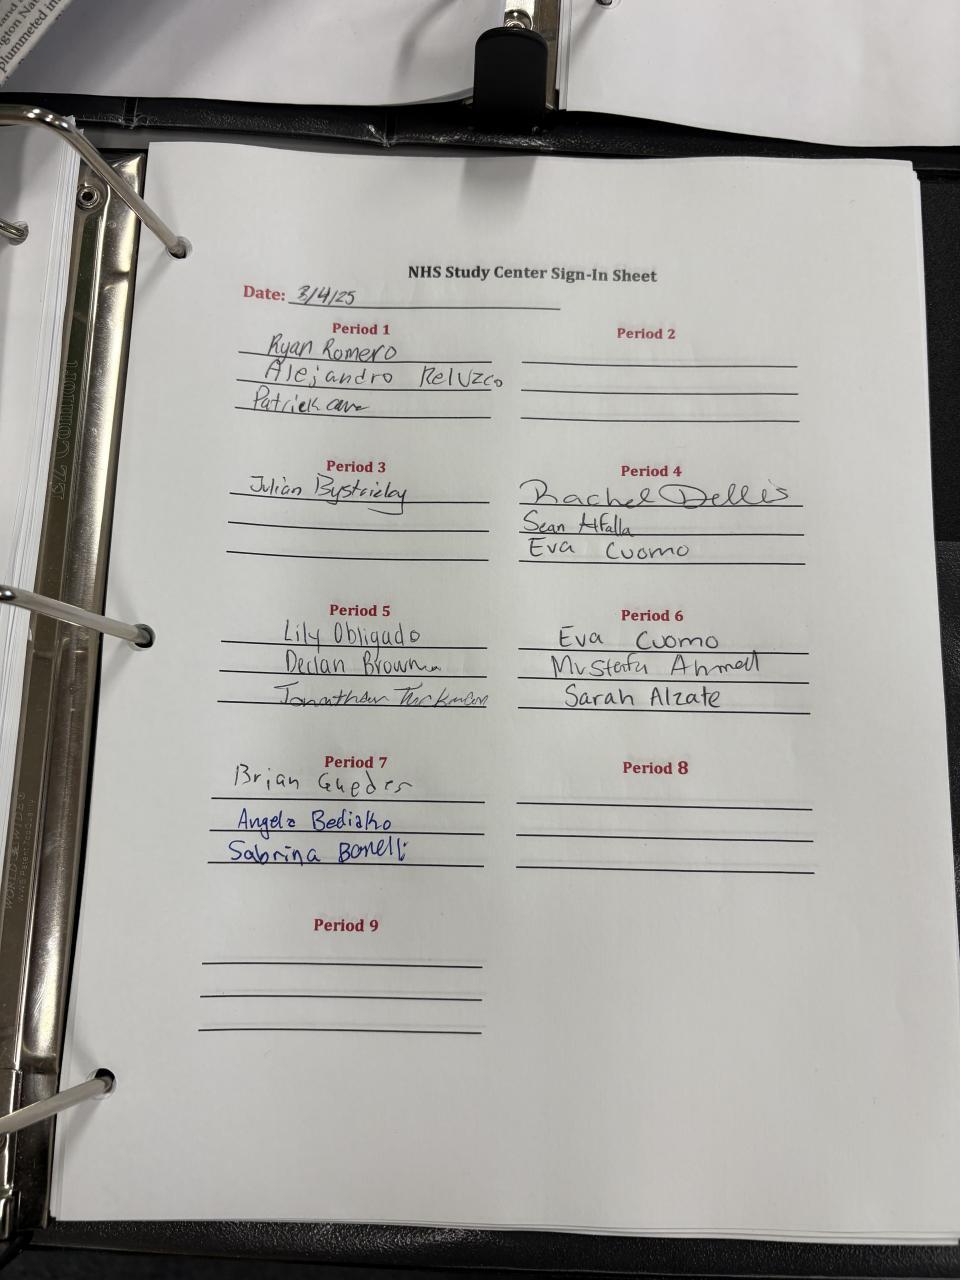 NHS Study Center Sign-In Sheet
Date: 3/4/25
Period 1
Ryan Romero
Alejandro Reluzco
Patrick
Period 2
Period 3
Julian
Period 4
Rachel Dellis
Sean Alfalla
Eva Cuomo
Period 5
Lily Obligado
Declan
Jonathan
Period 6
Eva Cuomo
Mustafa Ahmed
Sarah Alzate
Period 7
Brian Guedes
Angela Bediako
Sabrina Bonelli
Period 8
Period 9
plummeted